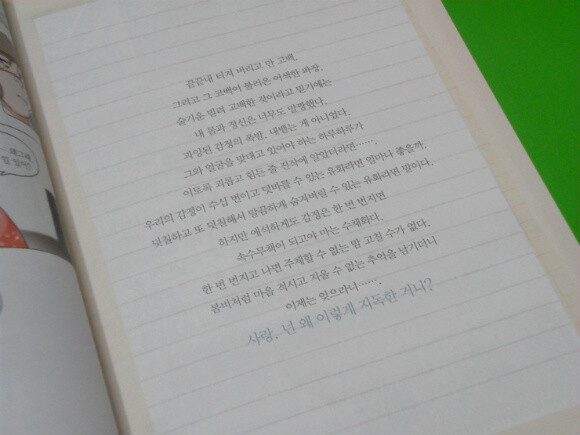 끝끝내 터져 버리고 만 고백.
그리고 그 고백이 불러온 어색한 파장.
술기운 빌려 고백한 것이라고 믿기에는
내 몸과 정신은 너무도 말짱했다.
과잉된 감정의 폭발, 내뱉는 게 아니었다.
그와 얼굴을 맞대고 있어야 하는 하루하루가
이토록 괴롭고 힘든 줄 진작에 알았더라면…….
우리의 감정이 수십 번이고 덧바를 수 있는 유화라면 얼마나 좋을까.
덧칠하고 또 덧칠해서 말끔하게 숨겨버릴 수 있는 유화라면 말이다.
하지만 애석하게도 감정은 한 번 번지면
속수무책이 되고야 마는 수채화다.
한 번 번지고 나면 주체할 수 없는 맘 고칠 수가 없다.
봄비처럼 마음 적시고 지울 수 없는 추억을 남기더니
이제는 잊으라니…….
사랑, 넌 왜 이렇게 지독한 거니?